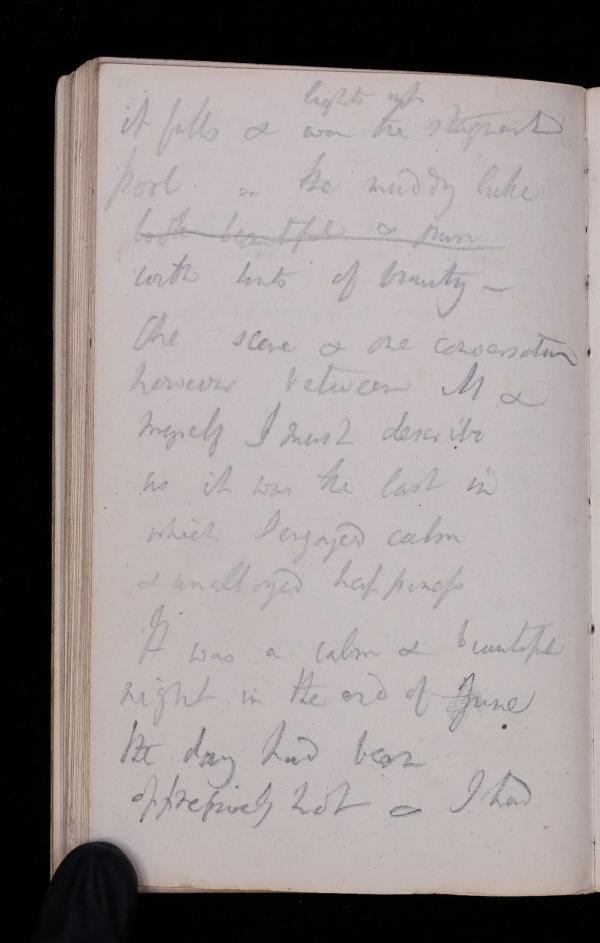 lights up
it falls & even the stagnant
pool or the muddy lake
look beautiful & pure
with tints of beauty —
One scene & one conversation
however between M &
myself I must describe
as it was the last in
which I enjoyed calm
& unalloyed happiness
It was a calm & beautiful
night in the end of June
the day had been
oppressively hot & I had